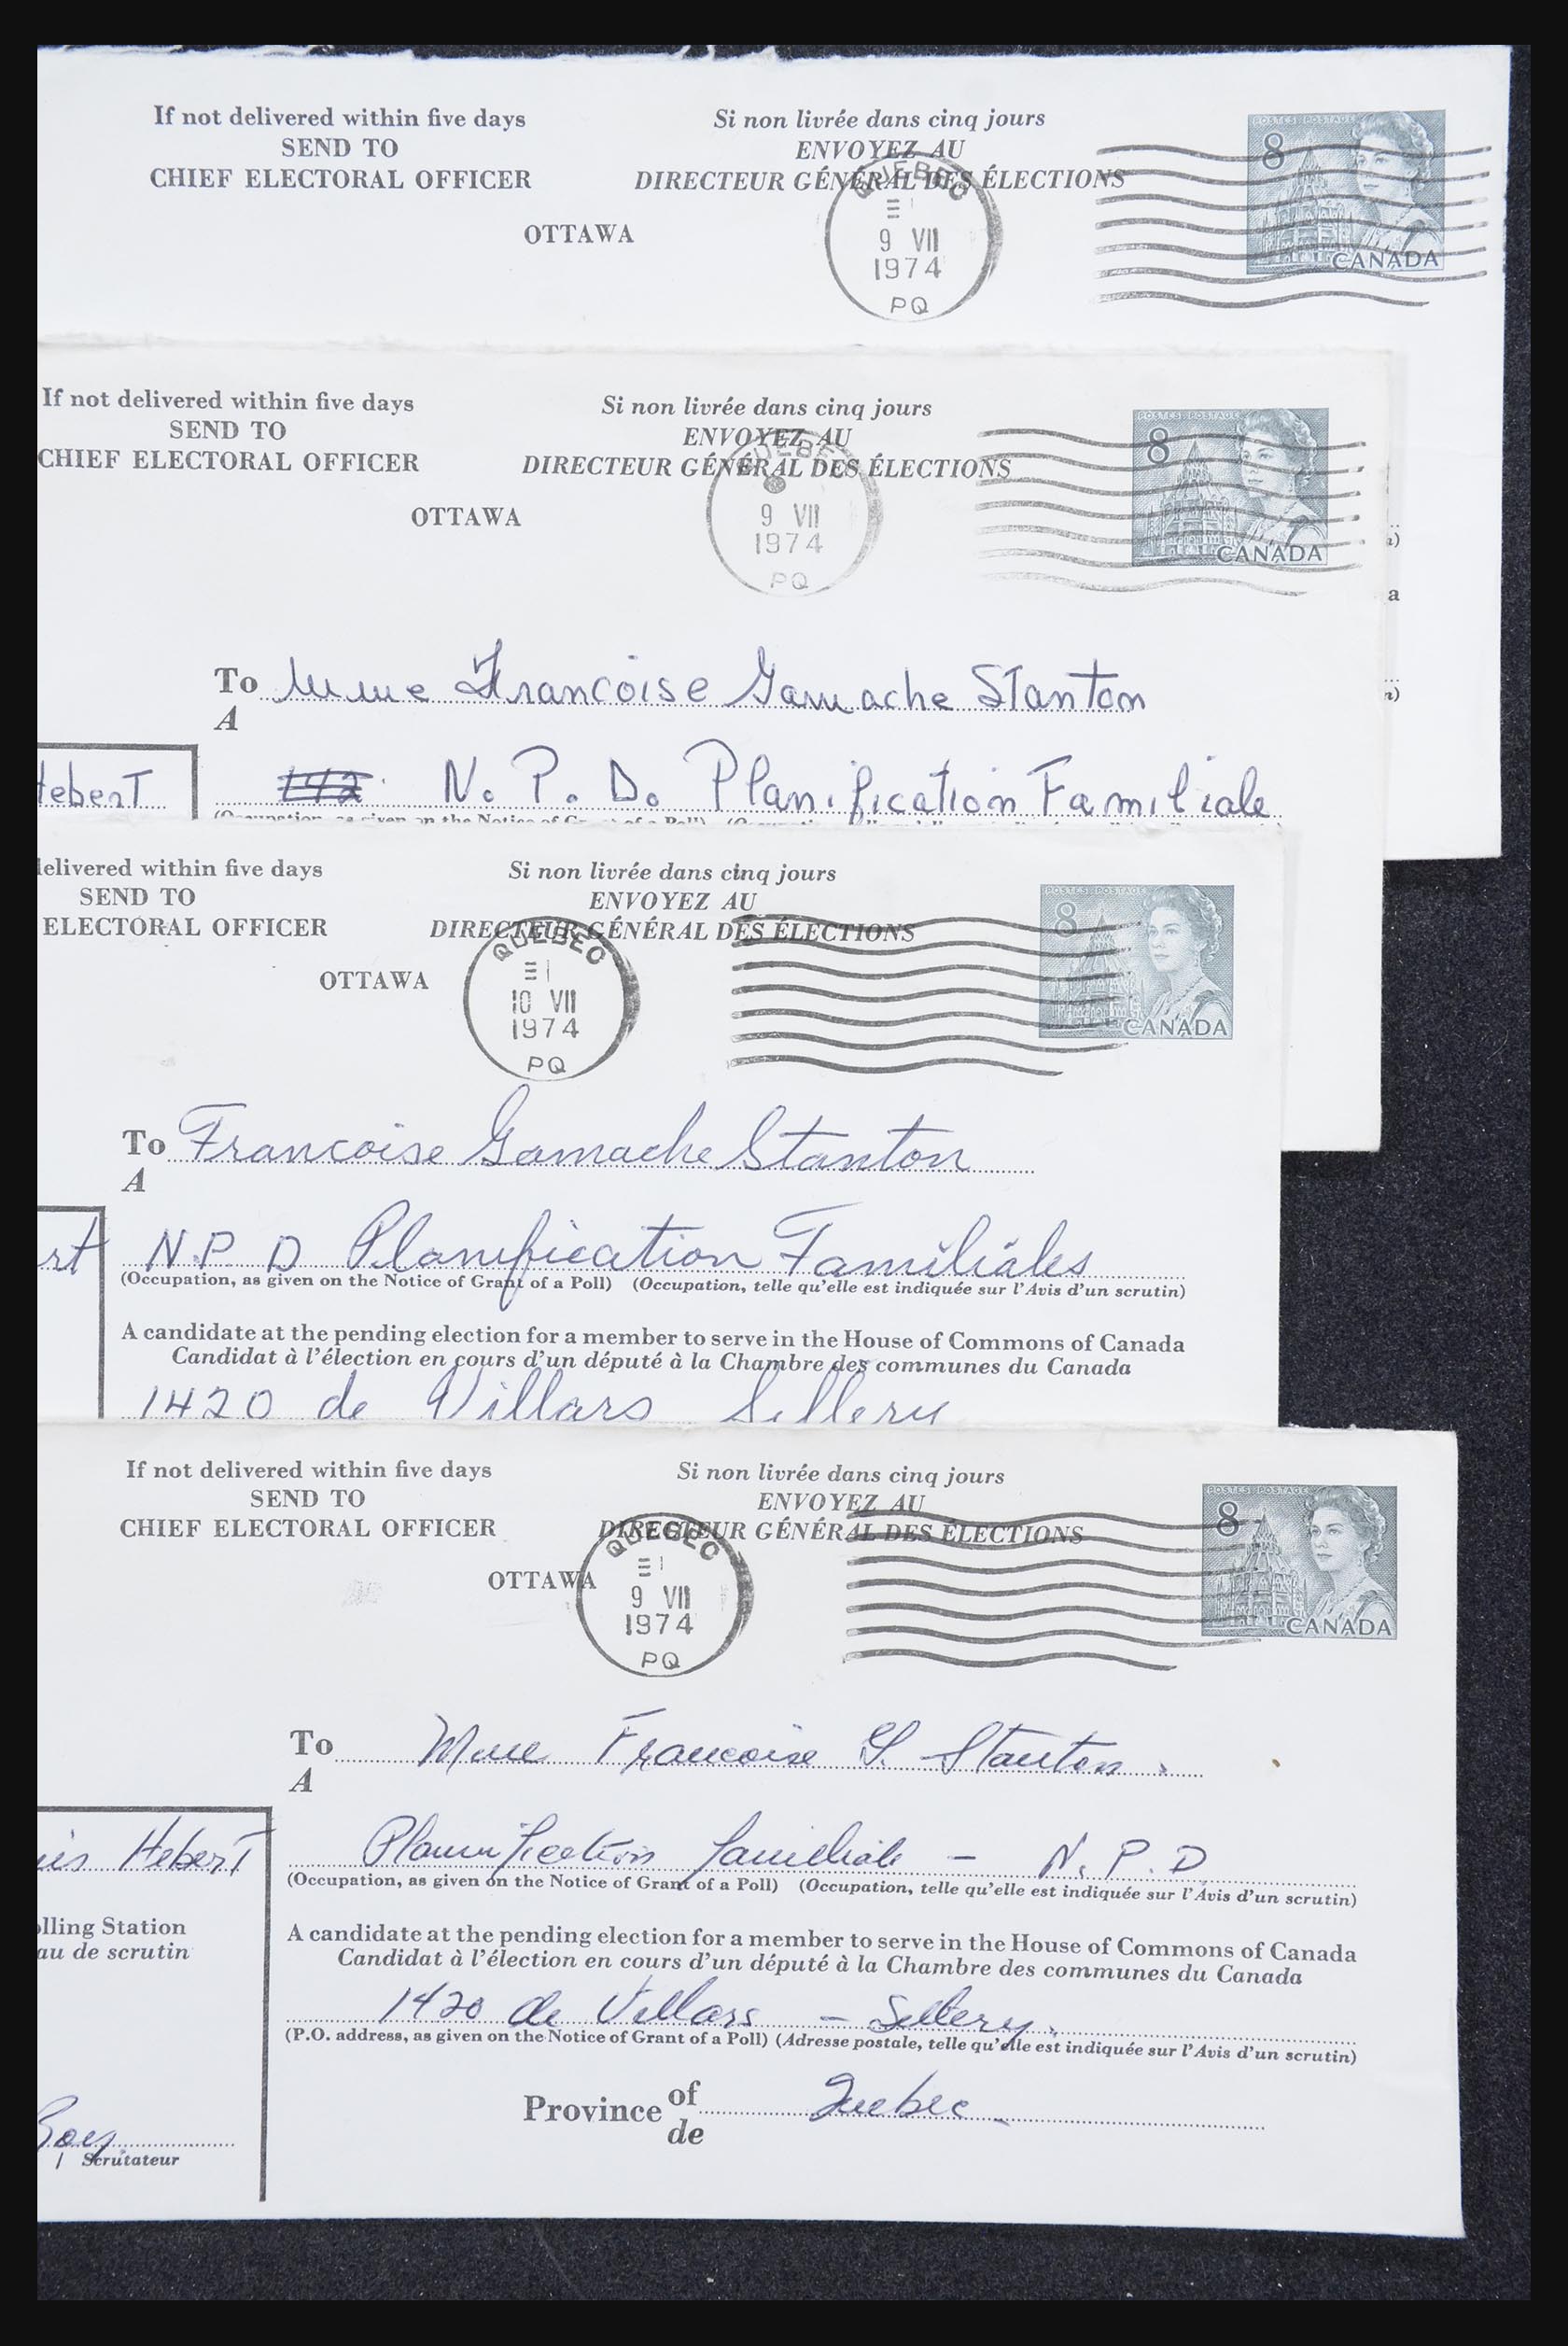 If not delivered within five days
SEND TO
CHIEF ELECTORAL OFFICER
Si non livrée dans cinq jours
ENVOYEZ AU
DIRECTEUR GÉNÉRAL DES ÉLECTIONS
OTTAWA
QUEBEC
9 VII
1974
PQ
POSTES POSTAGE
8
CANADA
If not delivered within five days
SEND TO
CHIEF ELECTORAL OFFICER
Si non livrée dans cinq jours
ENVOYEZ AU
DIRECTEUR GÉNÉRAL DES ÉLECTIONS
OTTAWA
QUEBEC
9 VII
1974
PQ
POSTES POSTAGE
8
CANADA
n)
a
n)
To Mme Francoise Gamache Stanton
A
Hebert
142 N. P. D. Planification Familiale
delivered within five days
SEND TO
ELECTORAL OFFICER
Si non livrée dans cinq jours
ENVOYEZ AU
DIRECTEUR GÉNÉRAL DES ÉLECTIONS
OTTAWA
QUEBEC
10 VII
1974
PQ
POSTES POSTAGE
8
CANADA
To Francoise Gamache Stanton
A
rt
N.P.D Planification Familiales
(Occupation, as given on the Notice of Grant of a Poll) (Occupation, telle qu'elle est indiquée sur l'Avis d'un scrutin)
A candidate at the pending election for a member to serve in the House of Commons of Canada
Candidat à l'élection en cours d'un député à la Chambre des communes du Canada
1420 de Villars Sillery
If not delivered within five days
SEND TO
CHIEF ELECTORAL OFFICER
Si non livrée dans cinq jours
ENVOYEZ AU
DIRECTEUR GÉNÉRAL DES ÉLECTIONS
OTTAWA
QUEBEC
9 VII
1974
PQ
POSTES POSTAGE
8
CANADA
To Mme Francoise G. Stanton.
A
is Hebert
Planification familiale - N.P.D
(Occupation, as given on the Notice of Grant of a Poll) (Occupation, telle qu'elle est indiquée sur l'Avis d'un scrutin)
lling Station
au de scrutin
A candidate at the pending election for a member to serve in the House of Commons of Canada
Candidat à l'élection en cours d'un député à la Chambre des communes du Canada
1420 de Villars - Sillery.
(P.O. address, as given on the Notice of Grant of a Poll) (Adresse postale, telle qu'elle est indiquée sur l'Avis d'un scrutin)
Province of Quebec
de
Scrutateur